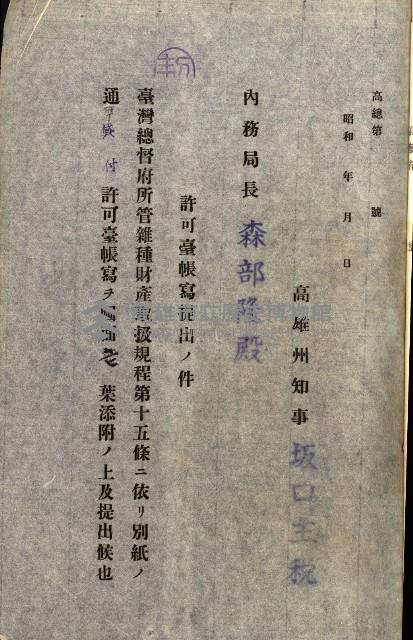 高總第　號
昭和　年　月　日
高雄州知事　坂口主税
內務局長　森部隆殿
許可臺帳寫提出ノ件
臺灣總督府所管雜種財產取扱規程第十五條ニ依リ別紙ノ
通　付許可臺帳寫ヲ　葉添附ノ上及提出候也